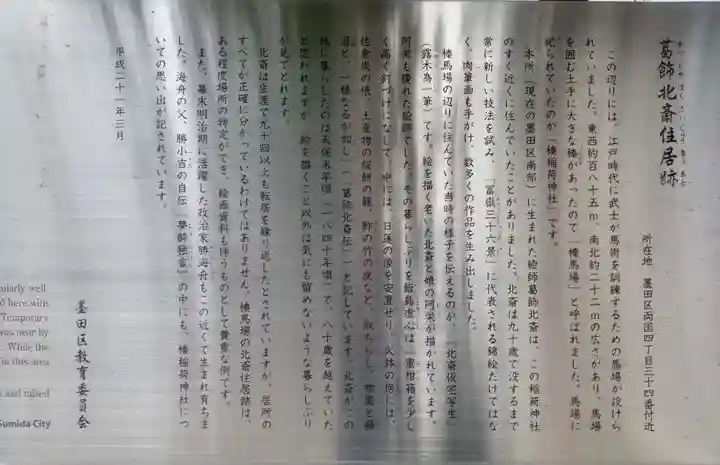 葛飾北斎住居跡
かつしかほくさいじゅうきょあと
所在地 墨田区両国四丁目三十四番付近
この辺りには、江戸時代に武士が馬術を訓練するための馬場が設けら
れていました。東西約百八十五m、南北約二十二mの広さがあり、馬場
を囲む土手に大きな榛があったので「榛馬場」と呼ばれました。馬場に
祀られていたのが「榛稲荷神社」です。
本所（現在の墨田区南部）に生まれた絵師葛飾北斎は、この稲荷神社
のすぐ近くに住んでいたことがありました。北斎は九十歳で没するまで
常に新しい技法を試み、「冨嶽三十六景」に代表される錦絵だけではな
く、肉筆画も手がけ、数多くの作品を生み出しました。
榛馬場の辺りに住んでいた当時の様子を伝えるのが、「北斎仮宅写生
（露木為一筆）」です。絵を描く老いた北斎と娘の阿栄が描かれています。
阿栄も優れた絵師でした。その暮らしぶりを飯島虚心は「蜜柑箱を少し
く高く釘づけになして、中には、日蓮の像を安置せり。火鉢の傍には、
佐倉炭の俵、土産物の桜餅の籠、鮓の竹の皮など、取ちらし、物置と掃
溜と、一様なるが如し」（「葛飾北斎伝」）と記しています。北斎がこの
地に暮らしたのは天保末年頃（一八四十年頃）で、八十歳を越えていた
と思われますが、絵を描くこと以外は気にも留めないような暮らしぶり
が見てとれます。
北斎は生涯で九十回以上も転居を繰り返したとされていますが、居所の
すべてが正確に分かっているわけではありません。榛馬場の北斎住居跡は、
ある程度場所の特定ができ、絵画資料も伴うものとして貴重な例です。
また、幕末明治期に活躍した政治家勝海舟もこの近くで生まれ育ちま
した。海舟の父、勝小吉の自伝「夢酔独言」の中にも、榛稲荷神社につ
いての思い出が記されています。
平成二十一年三月
墨田区教育委員会
ularly well
d here with
Temporary
was near by
. While the
in this area
and raised
Sumida City